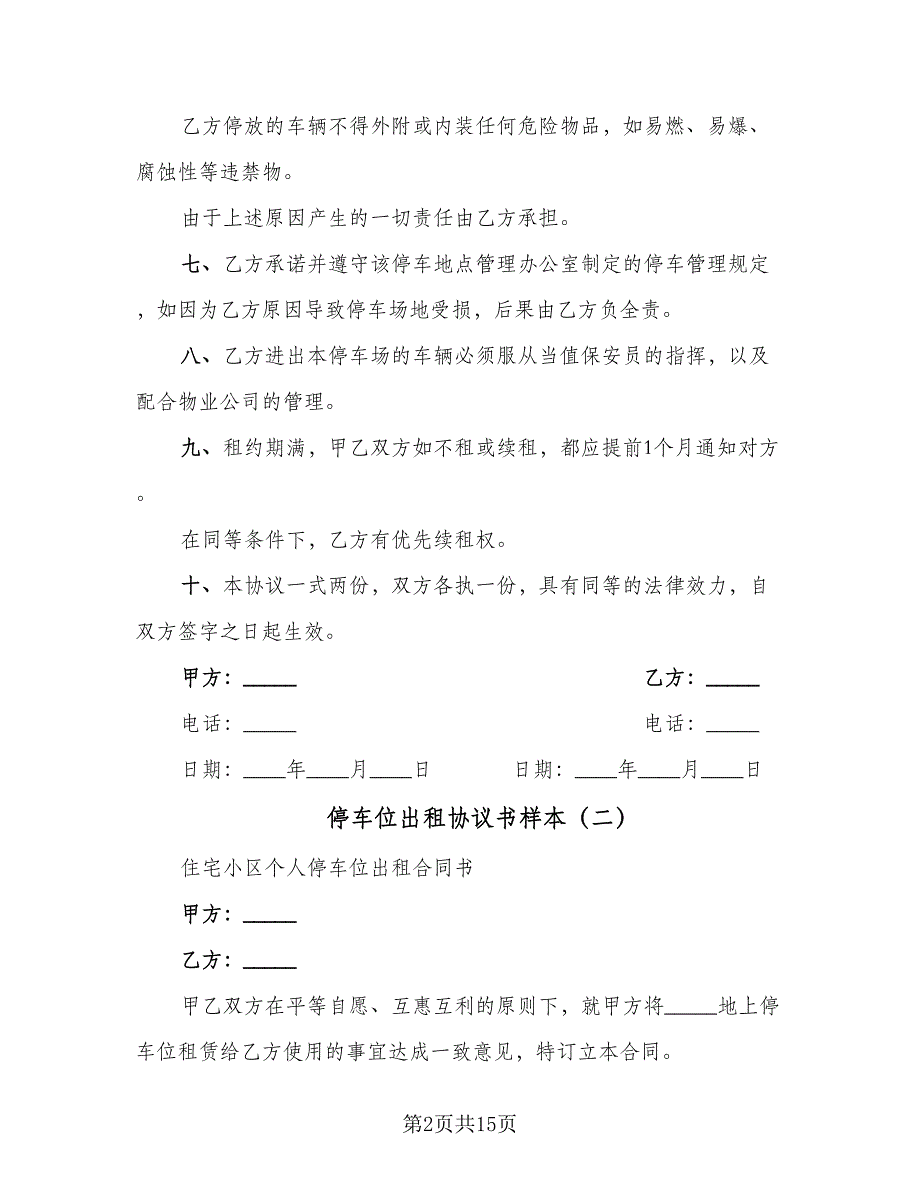 乙方停放的车辆不得外附或内装任何危险物品，如易燃、易爆、
腐蚀性等违禁物。
由于上述原因产生的一切责任由乙方承担。
七、乙方承诺并遵守该停车地点管理办公室制定的停车管理规定
，如因为乙方原因导致停车场地受损，后果由乙方负全责。
八、乙方进出本停车场的车辆必须服从当值保安员的指挥，以及
配合物业公司的管理。
九、租约期满，甲乙双方如不租或续租，都应提前1个月通知对方
。
在同等条件下，乙方有优先续租权。
十、本协议一式两份，双方各执一份，具有同等的法律效力，自
双方签字之日起生效。
甲方：_____ 乙方：_____
电话：_____ 电话：_____
日期：____年____月____日 日期：____年____月____日
停车位出租协议书样本（二）
住宅小区个人停车位出租合同书
甲方：_____
乙方：_____
甲乙双方在平等自愿、互惠互利的原则下，就甲方将_____地上停
车位租赁给乙方使用的事宜达成一致意见，特订立本合同。
第2页共15页